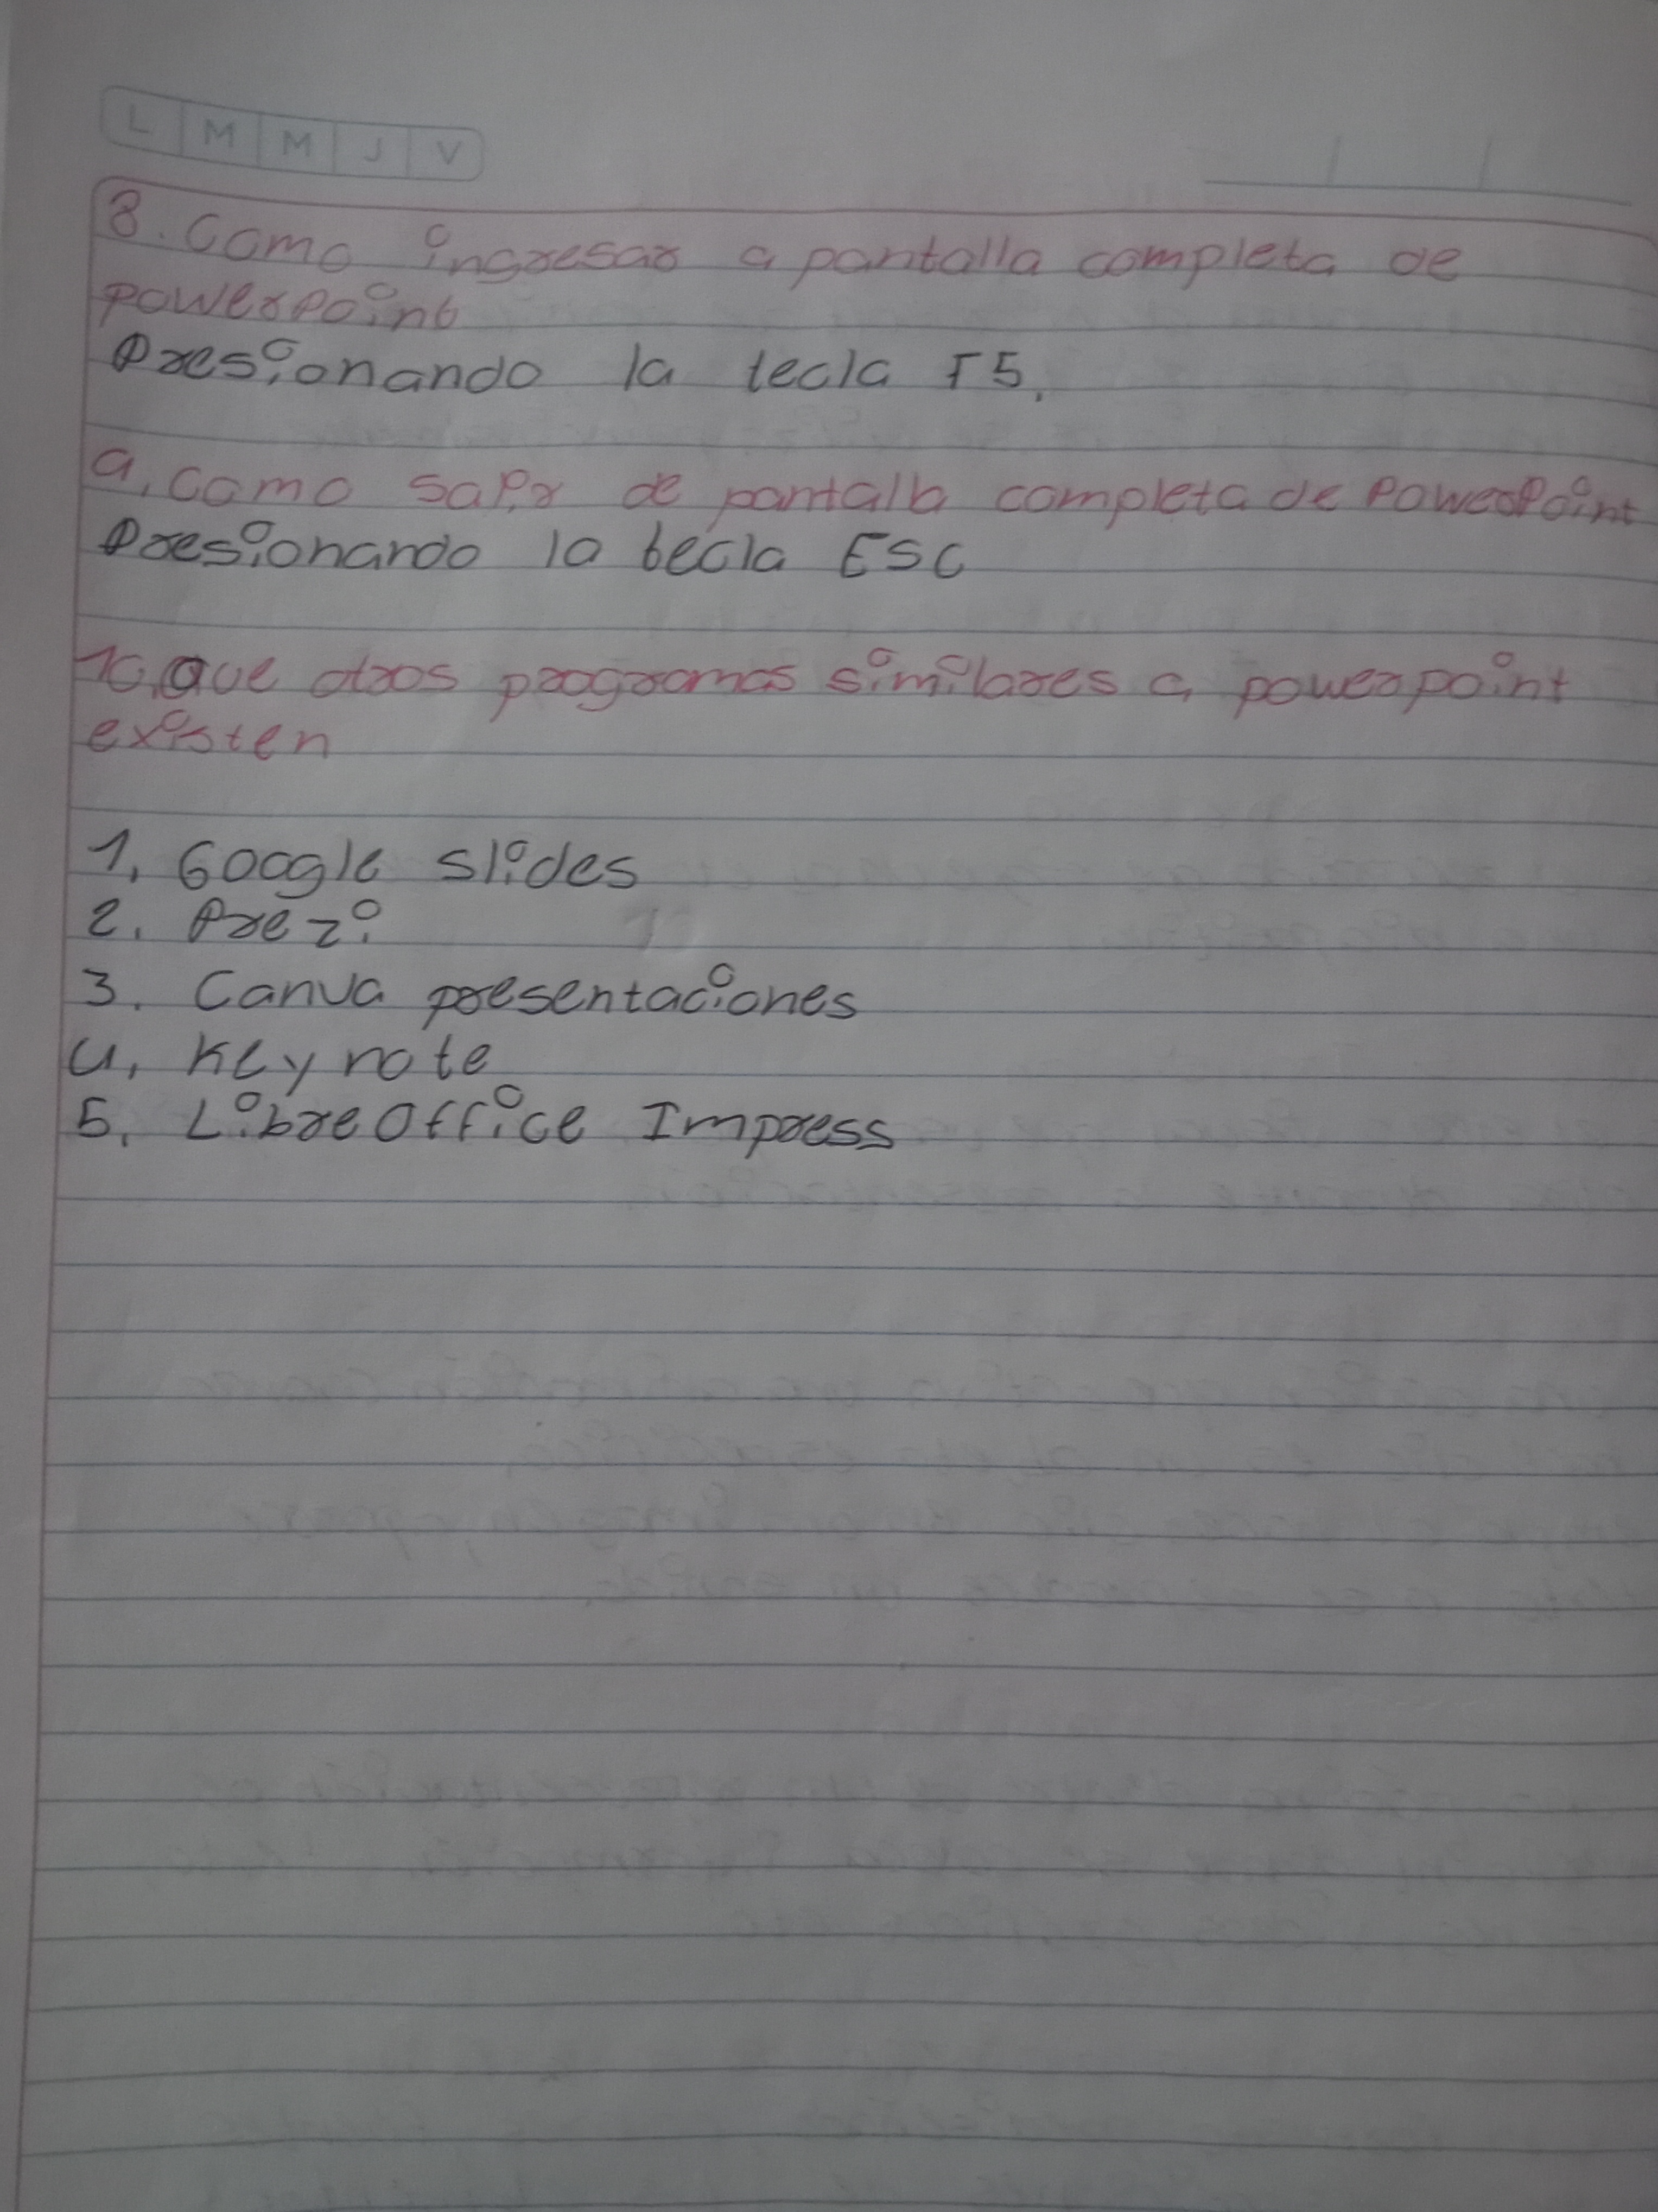 L M M J V
8. Como ingresar a pantalla completa de
powerpoint
Presionando la tecla F5.
9. Como salir de pantalla completa de PowerPoint
Presionando la tecla ESC
10. Que otros programas similares a powerpoint
existen
1. Google slides
2. Prezi
3. Canva presentaciones
4. Keynote
5. LibreOffice Impress